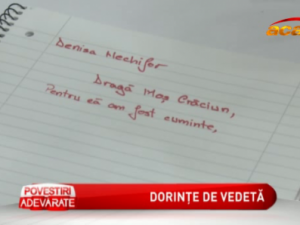 acasă
Denisa Nechifor
Dragă Moș Crăciun,
Pentru că am fost cuminte,
POVESTIRI
ADEVĂRATE
DORINȚE DE VEDETĂ